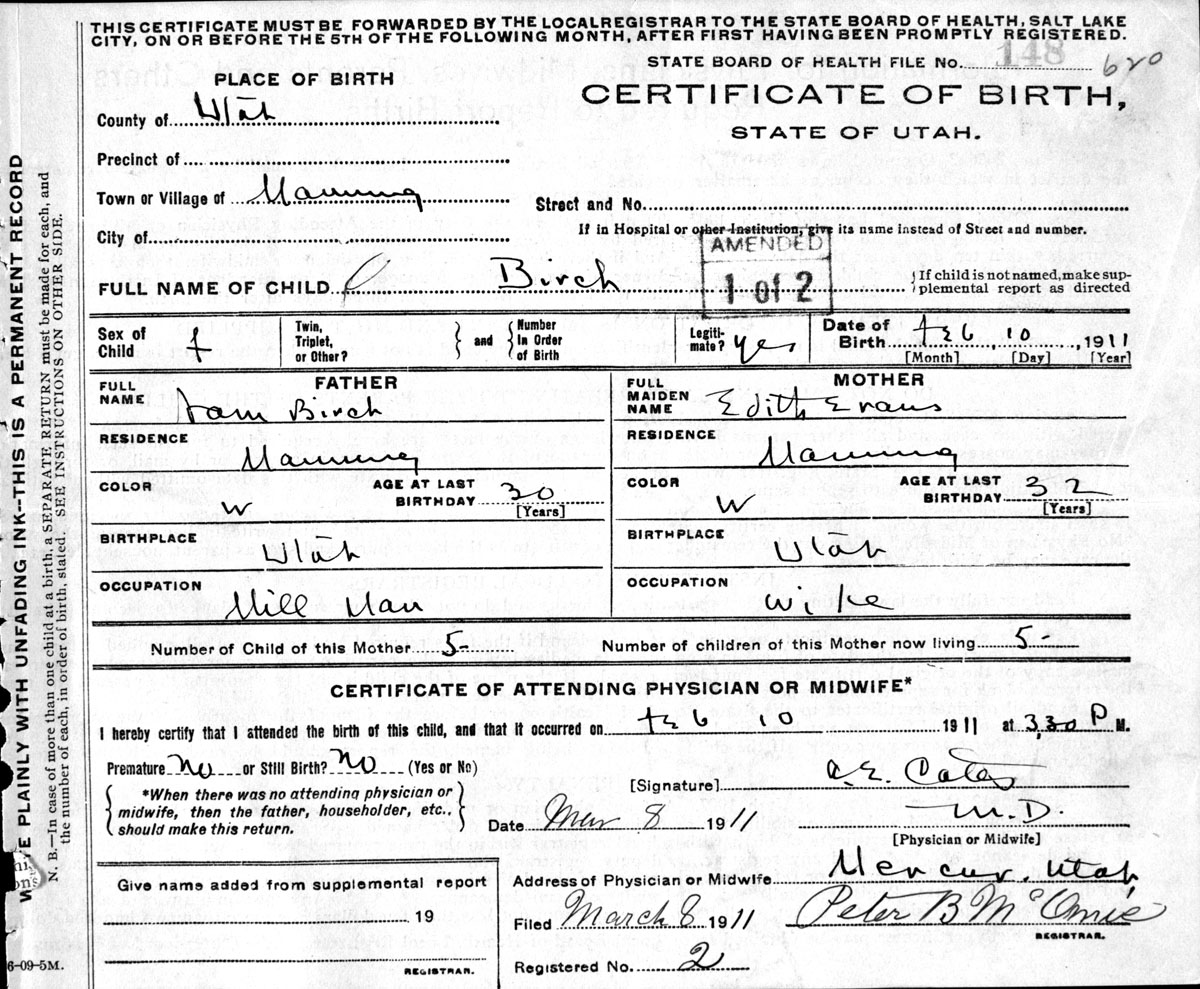 THIS CERTIFICATE MUST BE FORWARDED BY THE LOCAL REGISTRAR TO THE STATE BOARD OF HEALTH, SALT LAKE
CITY, ON OR BEFORE THE 5TH OF THE FOLLOWING MONTH, AFTER FIRST HAVING BEEN PROMPTLY REGISTERED.
STATE BOARD OF HEALTH FILE No. 148 620
PLACE OF BIRTH
CERTIFICATE OF BIRTH,
STATE OF UTAH.
County of Utah
Precinct of
Town or Village of Manning
Street and No.
City of
If in Hospital or other Institution, give its name instead of Street and number.
AMENDED
1 of 2
FULL NAME OF CHILD Birch
If child is not named, make sup-
plemental report as directed
Sex of Child f
Twin, Triplet, or Other?
and
Number In Order of Birth
Legiti-mate? yes
Date of Birth Feb, 10, 1911
[Month] [Day] [Year]
FATHER
FULL NAME Sam Birch
RESIDENCE
Manning
COLOR W
AGE AT LAST BIRTHDAY 30
[Years]
BIRTHPLACE
Utah
OCCUPATION
Mill Man
MOTHER
FULL MAIDEN NAME Edith Evans
RESIDENCE
Manning
COLOR W
AGE AT LAST BIRTHDAY 32
[Years]
BIRTHPLACE
Utah
OCCUPATION
Wife
Number of Child of this Mother 5-
Number of children of this Mother now living 5-
CERTIFICATE OF ATTENDING PHYSICIAN OR MIDWIFE*
I hereby certify that I attended the birth of this child, and that it occurred on Feb 10 1911 at 3,30 P M.
Premature No or Still Birth? No (Yes or No)
*When there was no attending physician or
midwife, then the father, householder, etc.,
should make this return.
[Signature]
M.D.
Date Mar 8 1911
[Physician or Midwife]
Give name added from supplemental report
19
REGISTRAR.
Address of Physician or Midwife Mercur, Utah
Filed March 8 1911 Peter B
REGISTRAR.
Registered No. 2
6-09-5M.
PLAINLY WITH UNFADING INK--THIS IS A PERMANENT RECORD
N. B.—In case of more than one child at a birth, a SEPARATE RETURN must be made for each, and
the number of each, in order of birth, stated. SEE INSTRUCTIONS ON OTHER SIDE.